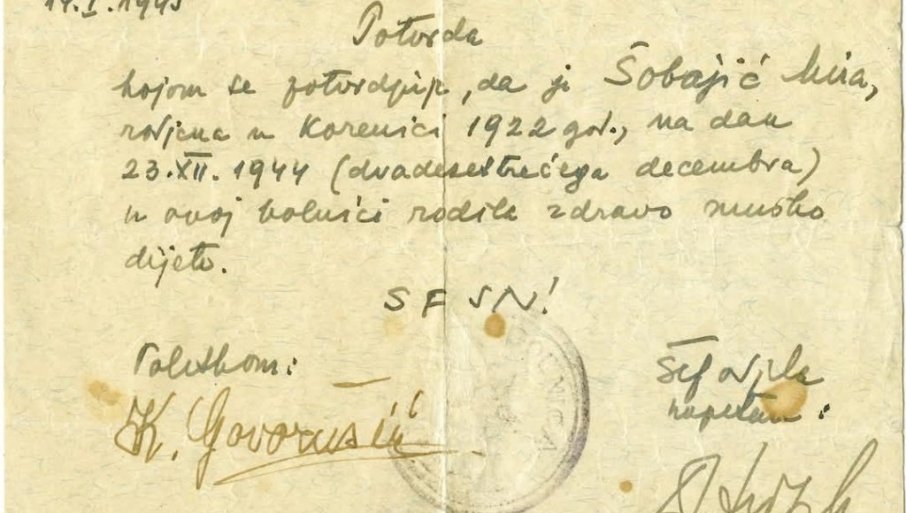 14.I.1945
Potvrda
kojom se potvrdjuje, da je Šobajić Mira,
rodjena u Korenici 1922 god., na dan
23.XII.1944 (dvadesettrećega decembra)
u ovoj bolnici rodila zdravo muško
dijete.
SFSN!
Politkom:
Šef odjela
kapetan:
K. Govorušić
BOLNICA